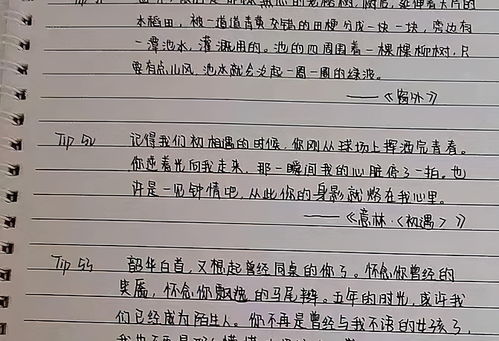 水稻田，被一道道青黄交错的田埂分成一块一块，旁边有
一潭池水，灌溉用的。池的四周围着一棵棵柳树，只
要有点儿风，池水就会泛起一圈一圈的绿波。
——《窗外》
Tip 52 记得我们初相遇的时候，你刚从球场上挥洒完青春。
你逆着光向我走来，那一瞬间我的心脏停了一拍。也
许是一见钟情吧，从此你的身影就烙在我心里。
——《意林·<初遇>》
Tip 53 韶华白首，又想起曾经同桌的你了。怀念你曾经的
笑靥，怀念你飘逸的马尾辫。五年的时光，或许我
们已经成为陌生人。你不再是曾经与我不语的女孩了，